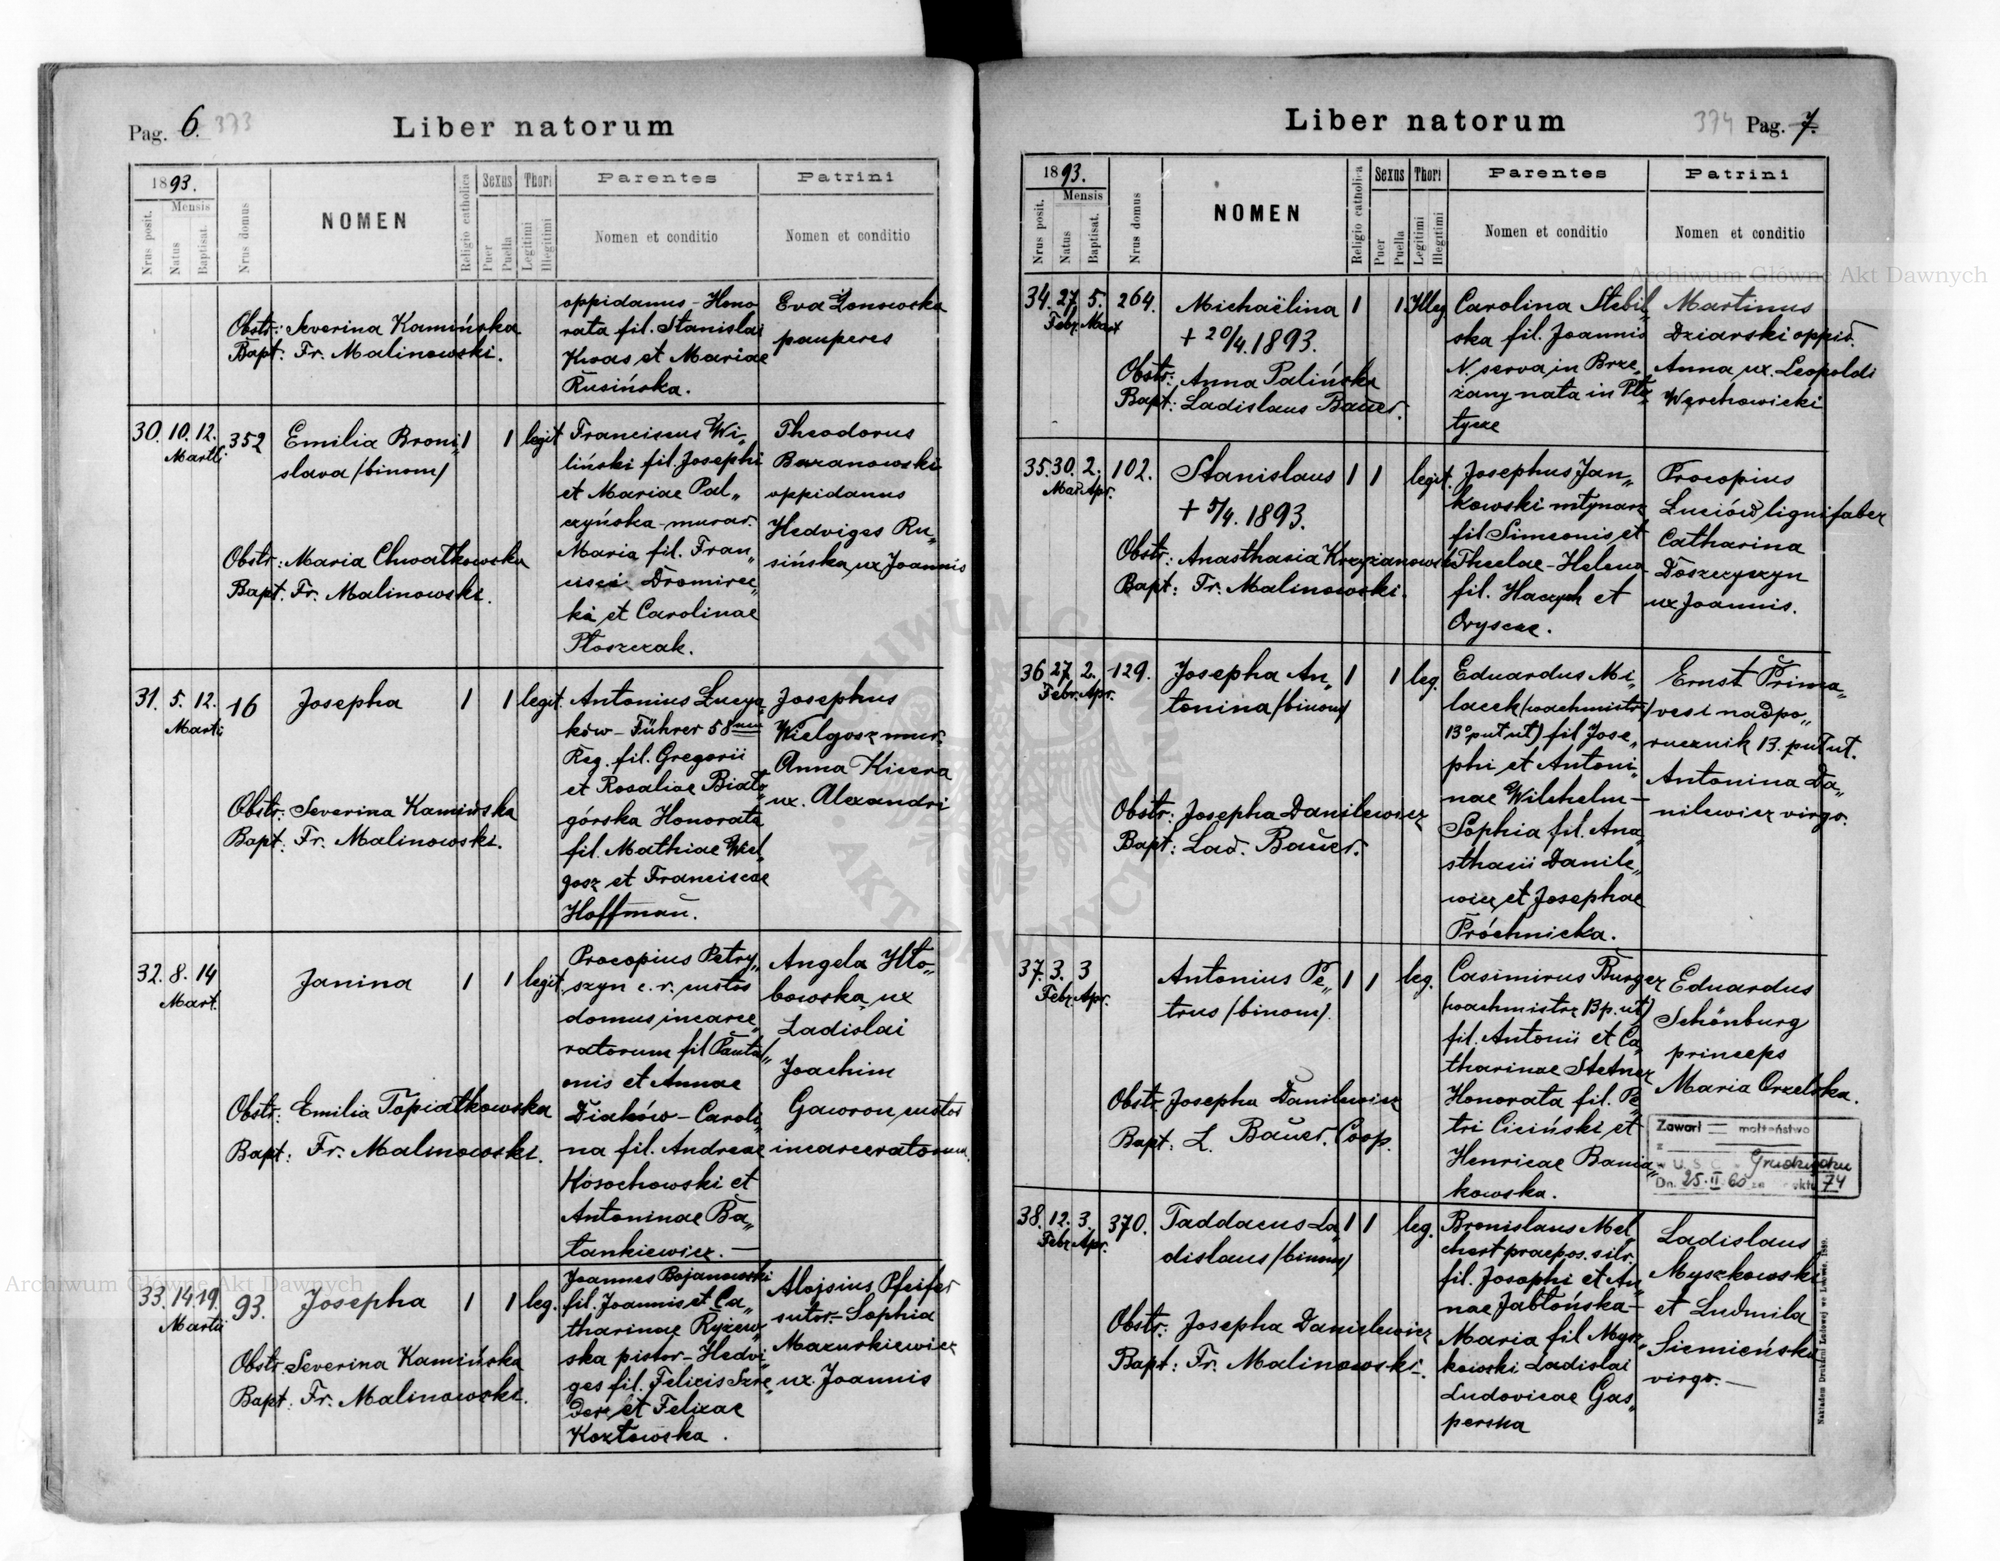 Pag. 6. 373
Liber natorum
1893.
Mensis
Nrus posit.
Natus
Baptisat.
Nrus domus
NOMEN
Religio catholica
Sexus
Puer
Puella
Thori
Legitimi
Illegitimi
Parentes
Nomen et conditio
Patrini
Nomen et conditio
Obstr: Severina Kamińska
Bapt: Fr. Malinowski.
oppidanus - Hono
rata fil. Stanislai
Kwas et Mariae
Rusińska.
Eva Łonowska
pauperes
30. 10. 12. 352
Martii
Emilia Broni„
slava (binom)
1 1 legit
Obstr: Maria Chwatkowska
Bapt. Fr. Malinowski.
Franciscus Wi„
liński fil. Josephi
et Mariae Pal„
czyńska - murar.
Maria fil. Fran„
cisci Dromirec„
ki et Carolinae
Płoszczak.
Theodorus
Baranowski
oppidanus
Hedviges Ru„
sińska ux Joannis
31. 5. 12. 16
Martii
Josepha
1 1 legit.
Obstr: Severina Kamińska
Bapt. Fr. Malinowski.
Antonius Łucya„
ków - Führer 58
Reg. fil. Gregorii
et Rosaliae Biało„
górska Honorata
fil. Mathiae Wiel„
gosz et Franciscae
Hoffman.
Josephus
Wielgosz mur.
Anna Kicera
ux. Alexandri
32. 8. 14
Mart.
Janina
1 1 legit.
Obstr: Emilia Topiatkowska
Bapt: Fr. Malinowski.
Procopius Petry„
szyn c. r. custos
domus incarce„
ratorum fil Panta„
onis et Annae
Diaków - Caroli„
na fil. Andreae
Kosochowski et
Antoninae Ba„
tankiewicz. —
Angela Hło„
bowska ux
Ladislai
Joachim
Gawron custos
incarceratorum.
33. 14. 19. 93.
Martii
Josepha
1 1 leg.
Obstr. Severina Kamińska
Bapt. Fr. Malinowski.
Joannes Bojanowski
fil. Joannis et Ca„
tharinae Ryżew„
ska pistor - Hedvi„
ges fil. Felicis Szre„
der et Felixae
Kozłowska.
Alojsius Pfeifer
sutor - Sophia
Mazurkiewicz
ux. Joannis
Liber natorum
374 Pag. 7.
1893.
Mensis
Nrus posit.
Natus
Baptisat.
Nrus domus
NOMEN
Religio catholica
Sexus
Puer
Puella
Thori
Legitimi
Illegitimi
Parentes
Nomen et conditio
Patrini
Nomen et conditio
34. 27. 5. 264.
Febr. Mart
Michaëlina
+ 20/4. 1893.
1 1 Illeg
Obstr: Anna Palińska
Bapt: Ladislaus Bauer.
Carolina Stebil„
ska fil. Joannis
N. serva in Brze„
żany nata in
tycze
Martinus
Dziarski oppid.
Anna ux. Leopoldi
Węrchowicki
35. 30. 2. 102.
Mar. Apr.
Stanislaus
+ 5/4. 1893.
1 1 legit.
Obstr: Anasthasia Krzyżanowski
Bapt: Fr. Malinowski.
Josephus Jan„
kowski młynarz
fil Simeonis et
Theclae - Helena
fil. Haczych et
Oryscae.
Procopius
Łuciów lignifaber
Catharina
Doszczyczyn
ux Joannis.
36. 27. 2. 129.
Febr. Apr.
Josepha An„
tonina (binom)
1 1 leg.
Obstr: Josepha Danilewicz
Bapt: Lad. Bauer.
Eduardus Mi„
lacek (wachmistr
13° put ut) fil Jose„
phi et Antoni„
nae Wilchelm -
Sophia fil. Ana
sthasii Danile„
wicz et Josephae
Próchnicka.
Ernst Prima„
vesi nadpo„
rucznik 13. put ut.
Antonina Da„
nilewicz virgo.
37. 3. 3
Febr. Apr.
Antonius Pe„
trus (binom).
1 1 leg.
Obstr. Josepha Danilewicz
Bapt: L. Bauer. Coop.
Casimirus Burger
(wachmistrz 13 p. ut)
fil. Antonii et Ca
tharinae Stetner
Honorata fil. Pe
tri Ciciński et
Henricae Bania„
kowska.
Eduardus
Schönburg
princeps
Maria Orzelska.
Zawarł — małżeństwo
z
w U. S. C. w Grudziądzu
Dn. 25. II. 60 za aktu 74
38. 12. 3. 370.
Febr. Apr.
Taddaeus La„
dislaus (binom)
1 1 leg.
Obstr: Josepha Danilewicz
Bapt: Fr. Malinowski.
Bronislaus Mel
chert praepos. silv.
fil. Josephi et An„
nae Jabłońska -
Maria fil Mysz„
kowski Ladislai
Ludovicae Gas„
perska
Ladislaus
Myszkowski
et Ludmila
Siemieńska
virgo. —
Nakładem Drukarni Ludowej we Lwowie, 1889.
Archiwum Główne Akt Dawnych
Archiwum Główne Akt Dawnych
ARCHIWUM GŁÓWNE AKT DAWNYCH